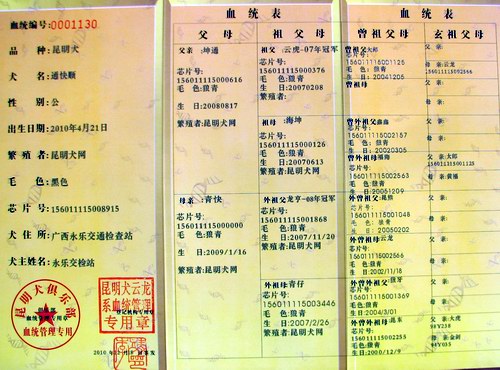 血统编号:0001130
品 种:昆明犬
犬 名:通快顺
性 别:公
出生日期:2010年4月21日
繁 殖 者:昆明犬网
毛 色:黑色
芯 片 号:156011115008915
犬 住 所:广西永乐交通检查站
犬主姓名:永乐交检站
昆明犬俱乐部
血统管理专用章
血统管理专用
昆明犬云龙
系血统管理
专用章
血统表
父 母
祖 父 母
父亲:坤通
芯片号:
156011115000616
毛色:狼青
生 日:20080817
繁殖者:昆明犬网
母亲:青快
芯片号:
156011115000000
毛色:狼青
生 日:2009/1/16
繁殖者:昆明犬网
祖父:云虎-07年冠军
芯片号:
156011115000376
毛 色:狼青
生 日:20070208
繁殖者:
祖母:海坤
芯片号:
156011115000126
毛 色:狼青
生 日:20070613
繁殖者:昆明犬网
外祖父龙亨-08年冠军
芯片号:
156011115001868
毛色:狼青
生 日:2007/11/20
繁殖者:昆明犬网
外祖母:青仔
芯片号:
156011115003446
毛色:狼青
生 日:2007/2/26
繁殖者:昆明犬网
血统表
曾祖父母
玄祖父母
芯片号:
156011115001125
毛 色:狼青
生 日:20041205
曾祖母
芯片号:
毛 色:
生 日:
芯片号:
156011115002157
毛 色:狼青
生 日:20020305
曾外祖母福海
芯片号:
156011115002563
毛 色:狼青
生 日:20051209
芯片号:
毛 色:狼青
生 日:20050202
外曾祖母:云龙
芯片号:
毛 色:狼青
生 日:2002/11/18
芯片号:
毛 色:狼青
生 日:2004/3/01
芯片号:
156011115002255
毛 色:狼青
生 日:2000/12/9
父亲:云龙
156011115002566
母亲:
父亲:
母亲:
父亲:
母亲:
父亲:大郎
156011115001125
母亲:黄福
父亲:
母亲:
父亲:
母亲:
父亲:
母亲:
父亲:大虎
98Y238
母亲:金刺
98Y035